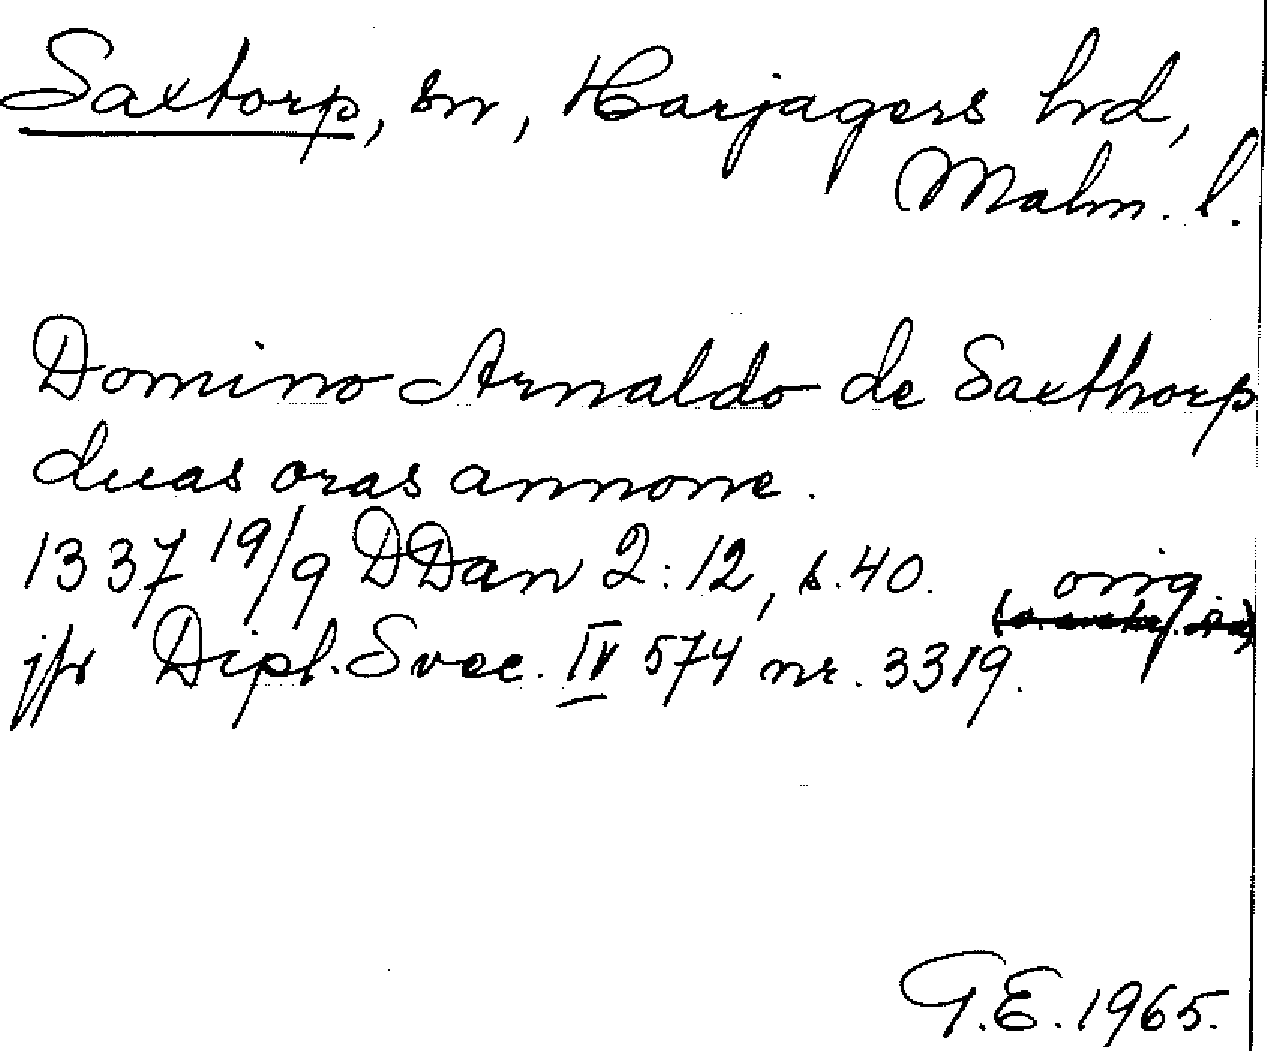 Saxtorp, sn, Harjagers hrd,
Malm. l.
Domino Arnaldo de Saxthorp
duas oras annone.
1337 19/9 DDan 2:12, s. 40. orig.
jfr Dipl. Svec. IV 574 nr. 3319.
G.E. 1965.